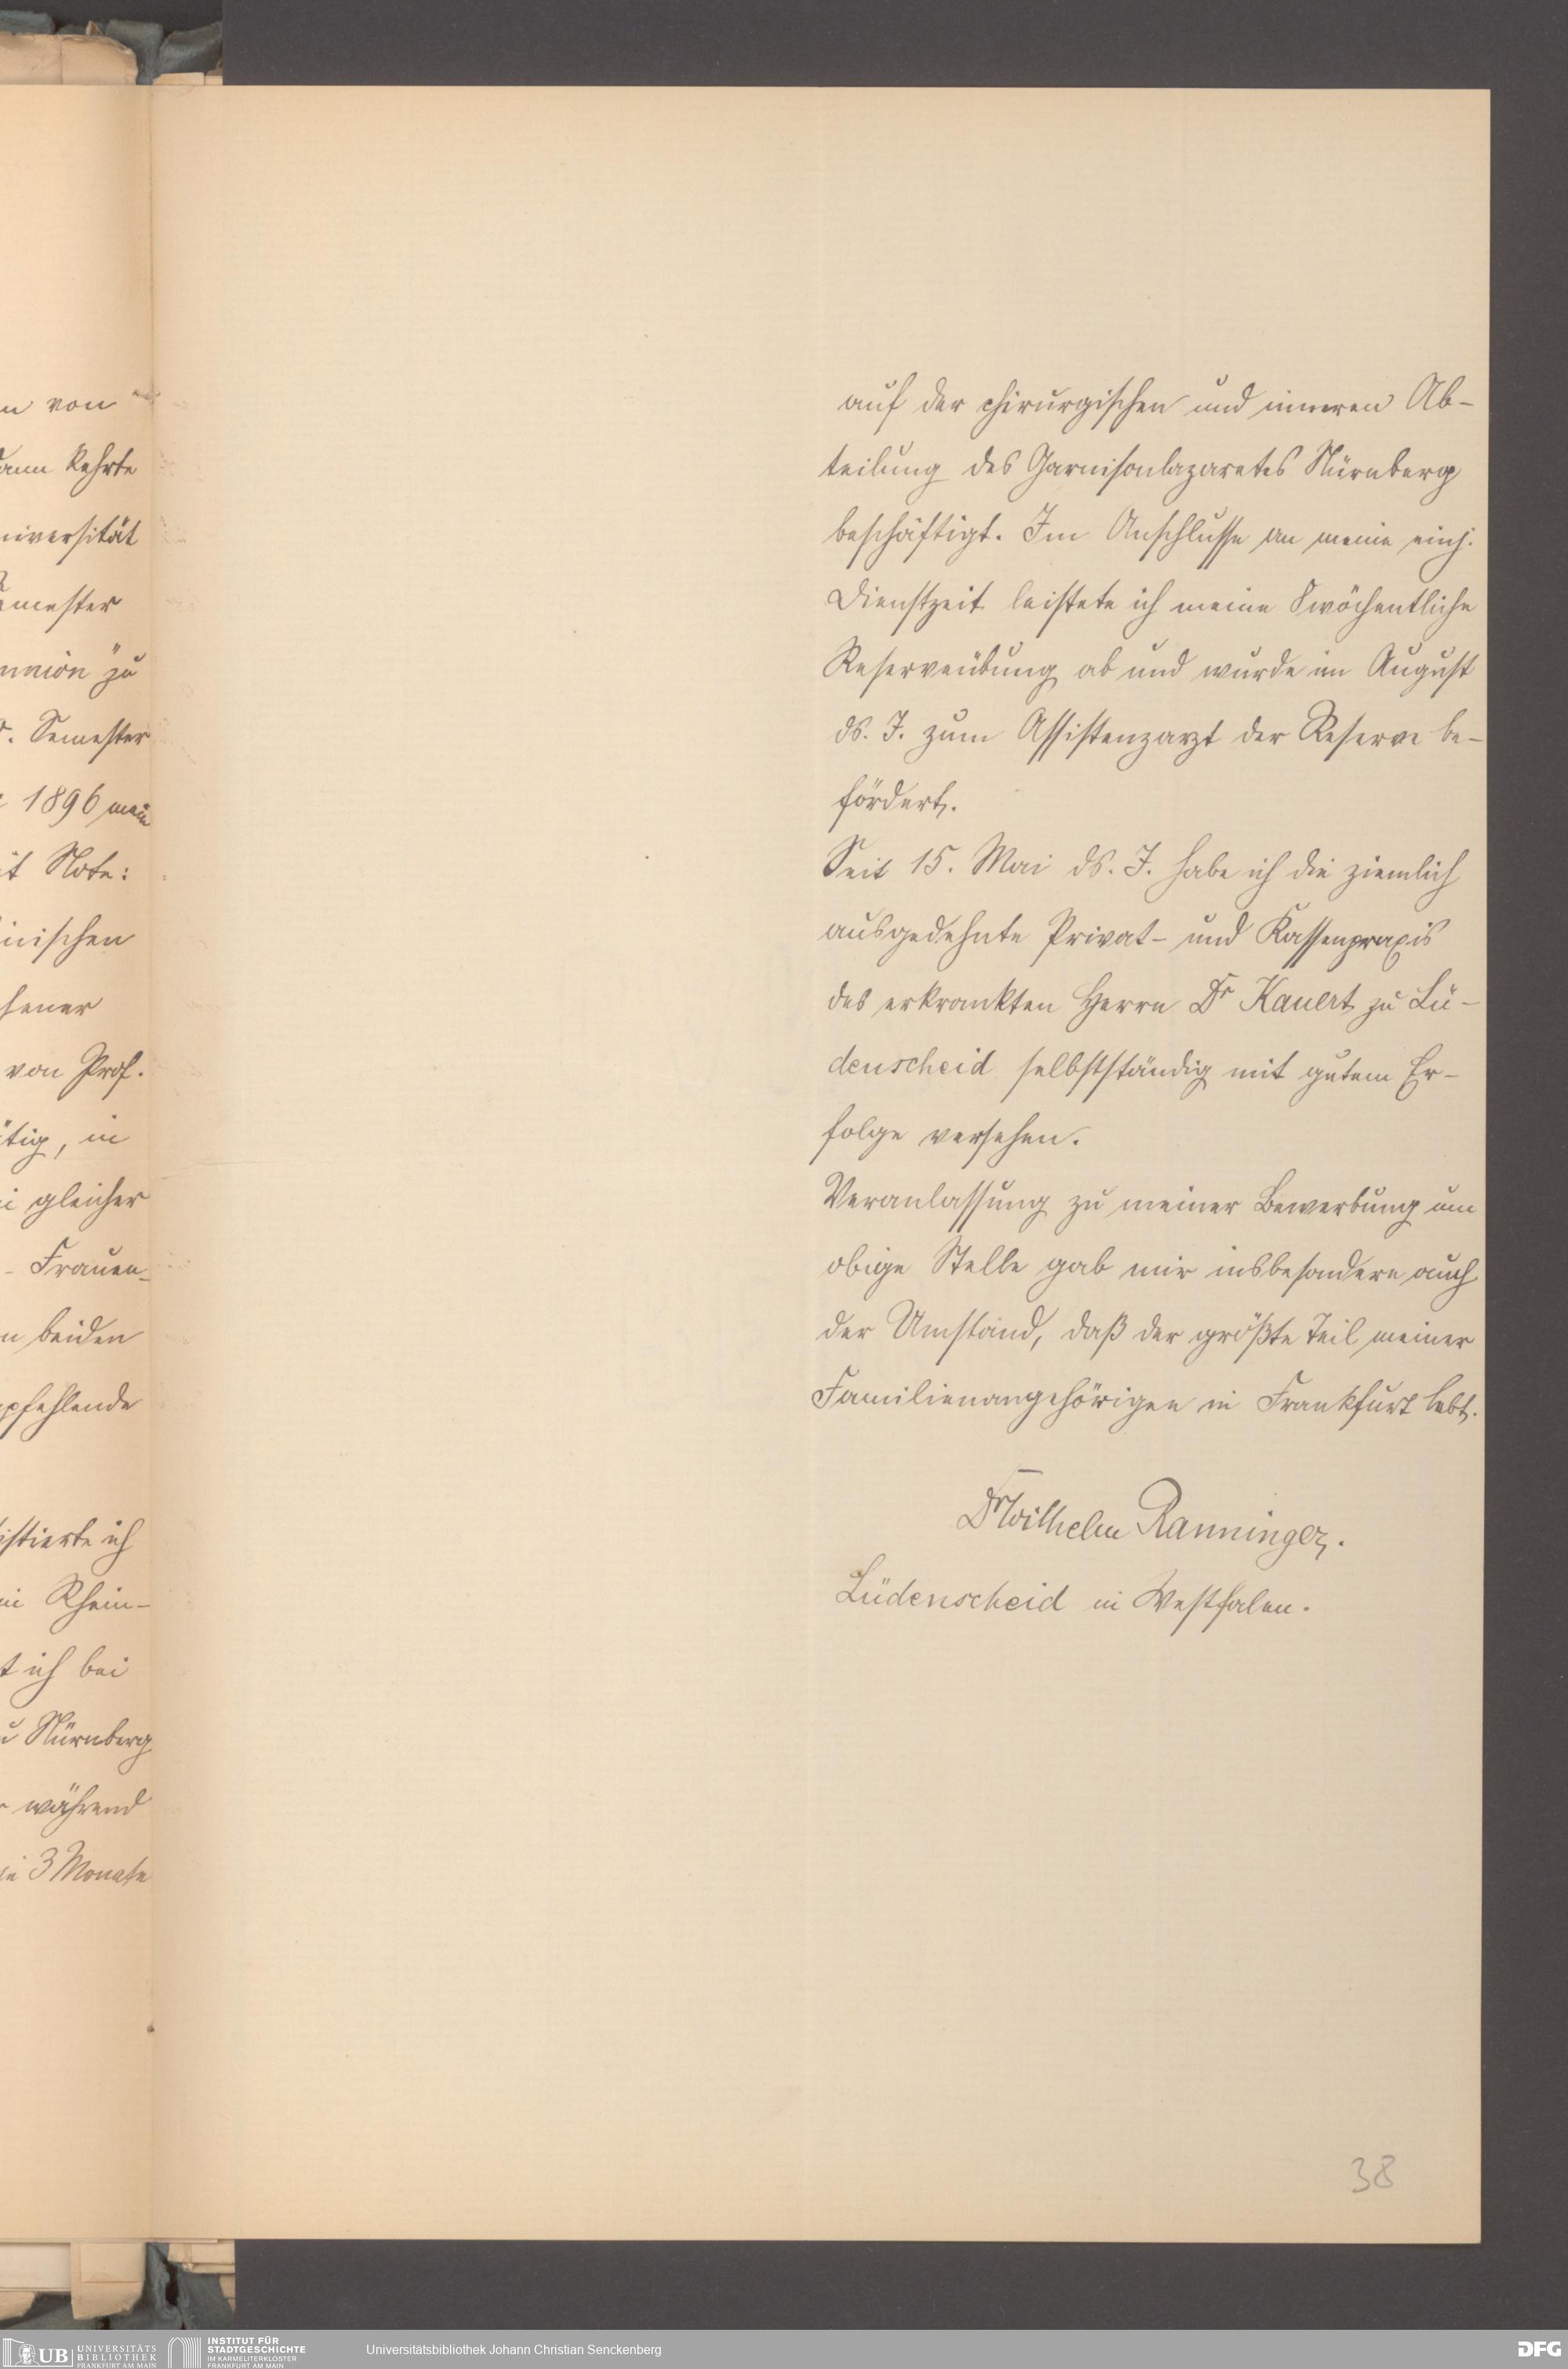 n von
dann kehrte
niversität
Semester
nnion" zu
. Semester
1896 mein
it Note:
inischen
fener
von Prof.
ätig, in
i gleicher
- Frauen-
n beiden
pfehlende
istierte ich
in Rhein-
t ich bei
u Nürnberg
während
je 3 Monate
auf der chirurgischen und inneren Ab-
teilung des Garnisonlazaretes Nürnberg
beschäftigt. Im Anschlusse an meine einj.
Dienstzeit leistete ich meine 8wöchentliche
Reserveübung ab und wurde im August
ds. J. zum Assistenzarzt der Reserve be-
fördert.
Seit 15. Mai ds. J. habe ich die ziemlich
ausgedehnte Privat- und Kassenpraxis
des erkrankten Herrn Dr Kauert zu Lü-
denscheid selbstständig mit gutem Er-
folge versehen.
Veranlassung zu meiner Bewerbung um
obige Stelle gab mir insbesondere auch
der Umstand, daß der größte Teil meiner
Familienangehörigen in Frankfurt lebt.
Dr Wilhelm Ranninger.
Lüdenscheid in Westfalen.
38
UB UNIVERSITÄTS
BIBLIOTHEK
FRANKFURT AM MAIN
INSTITUT FÜR
STADTGESCHICHTE
IM KARMELITERKLOSTER
FRANKFURT AM MAIN
Universitätsbibliothek Johann Christian Senckenberg
DFG